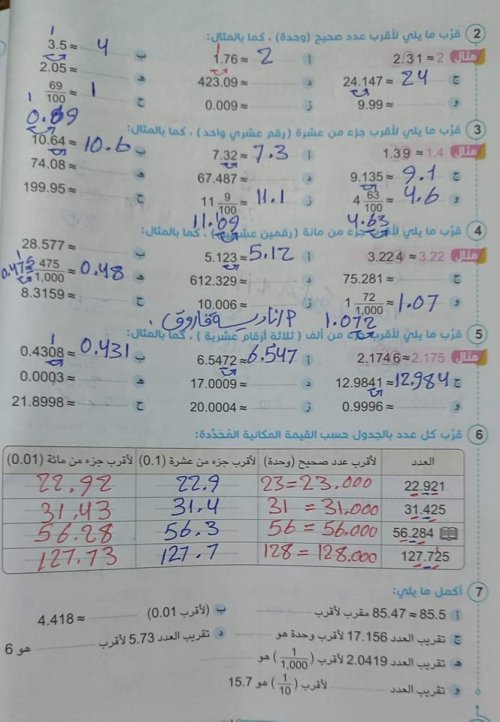 2 قرّب ما يلي لأقرب عدد صحيح (وحدة)، كما بالمثال:
مثال 2.31 ≈ 2 أ 1.76 ≈ 2 ب 3.5 ≈ 4
ج 24.147 ≈ 24 د 423.09 ≈ هـ 2.05 ≈
و 9.99 ≈ ز 0.009 ≈ ح 69/100 ≈ 1
0.69
3 قرّب ما يلي لأقرب جزء من عشرة (رقم عشري واحد)، كما بالمثال:
مثال 1.39 ≈ 1.4 أ 7.32 ≈ 7.3 ب 10.64 ≈ 10.6
ج 9.135 ≈ 9.1 د 67.487 ≈ هـ 74.08 ≈
و 4 63/100 ≈ 4.6 ز 11 9/100 ≈ 11.1 ح 199.95 ≈
4.63 11.09
4 قرّب ما يلي لأقرب جزء من مائة (رقمين عشريين)، كما بالمثال:
مثال 3.224 ≈ 3.22 أ 5.123 ≈ 5.12 ب 28.577 ≈
ج 75.281 ≈ د 612.329 ≈ هـ 475/1,000 ≈ 0.48
0.475
و 1 72/1,000 ≈ 1.07 ز 10.006 ≈ ح 8.3159 ≈
1.072 فاروق
5 قرّب ما يلي لأقرب جزء من ألف (ثلاثة أرقام عشرية)، كما بالمثال:
مثال 2.1746 ≈ 2.175 أ 6.5472 ≈ 6.547 ب 0.4308 ≈ 0.431
ج 12.9841 ≈ 12.984 د 17.0009 ≈ هـ 0.0003 ≈
و 0.9996 ≈ ز 20.0004 ≈ ح 21.8998 ≈
6 قرّب كل عدد بالجدول حسب القيمة المكانية المُحَدَّدة:
العدد لأقرب عدد صحيح (وحدة) لأقرب جزء من عشرة (0.1) لأقرب جزء من مائة (0.01)
22.921 23 = 23.000 22.9 22.92
31.425 31 = 31.000 31.4 31.43
56.284 56 = 56.000 56.3 56.28
127.725 128 = 128.000 127.7 127.73
7 أكمل ما يلي:
أ 85.5 ≈ 85.47 مقرب لأقرب ب ≈ 4.418 (لأقرب 0.01)
ج تقريب العدد 17.156 لأقرب وحدة هو د تقريب العدد 5.73 لأقرب هو 6
هـ تقريب العدد 2.0419 لأقرب (1/1,000) هو
و تقريب العدد لأقرب (1/10) هو 15.7